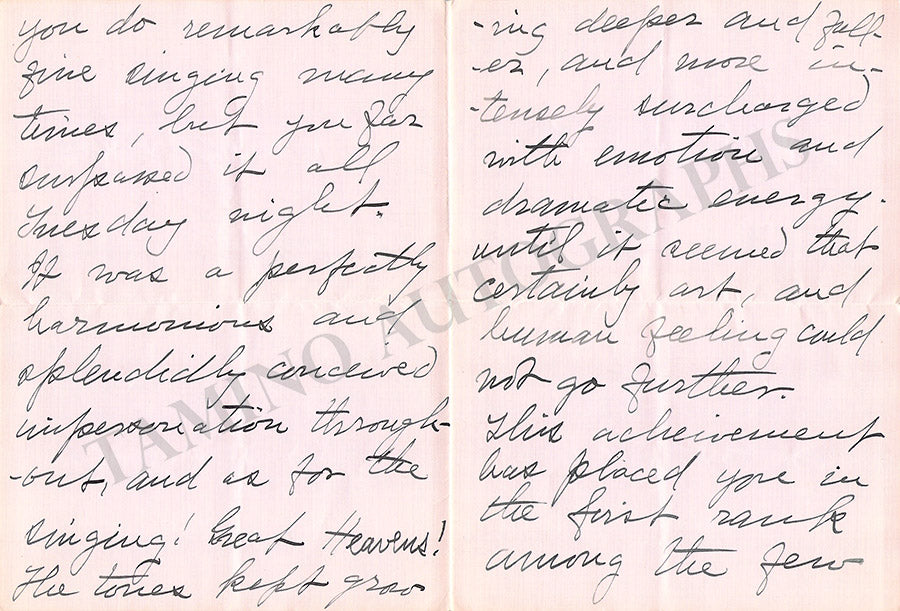 you do remarkably
fine singing many
times, but you far
surpassed it all
Tuesday night.
It was a perfectly
harmonious and
splendidly conceived
impersonation through-
-out, and as for the
singing! Great Heavens!
The tones kept grow
-ing deeper and full-
-er, and more in-
-tensely surcharged
with emotion and
dramatic energy.
until it seemed that
certainly art, and
human feeling could
not go further.
This acheivement
has placed you in
the first rank
among the few
TAMINO AUTOGRAPHS